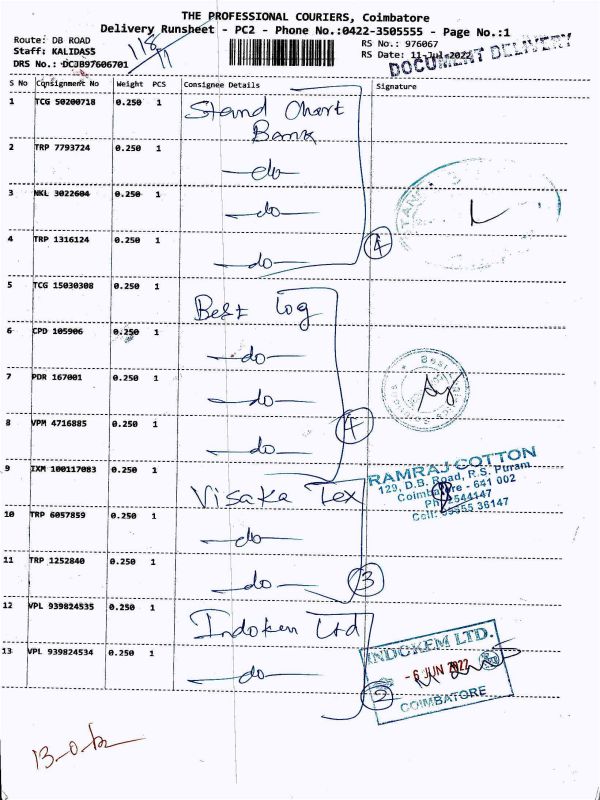 THE PROFESSIONAL COURIERS, Coimbatore
Delivery Runsheet - PC2 - Phone No.:0422-3505555 - Page No.:1
Route: DB ROAD
Staff: KALIDASS
DRS No.: DCJB97606701
118/11
RS No.: 976067
RS Date: 11-Jul-2022
DOCUMENT DELIVERY
S No Consignment No Weight PCS Consignee Details Signature
1 TCG 50200718 0.250 1 Stand Chart
Bank
2 TRP 7793724 0.250 1 -do-
3 NKL 3022604 0.250 1 -do-
4 TRP 1316124 0.250 1 -do- 4
5 TCG 15030308 0.250 1 Best Log
6 CPD 105906 0.250 1 -do-
7 PDR 167001 0.250 1 -do-
8 VPM 4716885 0.250 1 -do- 4
9 IXM 100117083 0.250 1 Visaka Tex
RAMRAJ COTTON
129, D.B. Road, R.S. Puram
Coimbatore - 641 002
Ph: 2544147
Cell: 36147
10 TRP 6057859 0.250 1 -do-
11 TRP 1252840 0.250 1 -do- 3
12 VPL 939824535 0.250 1 Indoken Ltd
13 VPL 939824534 0.250 1 -do- 2
INDOKEM LTD.
- 6 JUN 2022
COIMBATORE